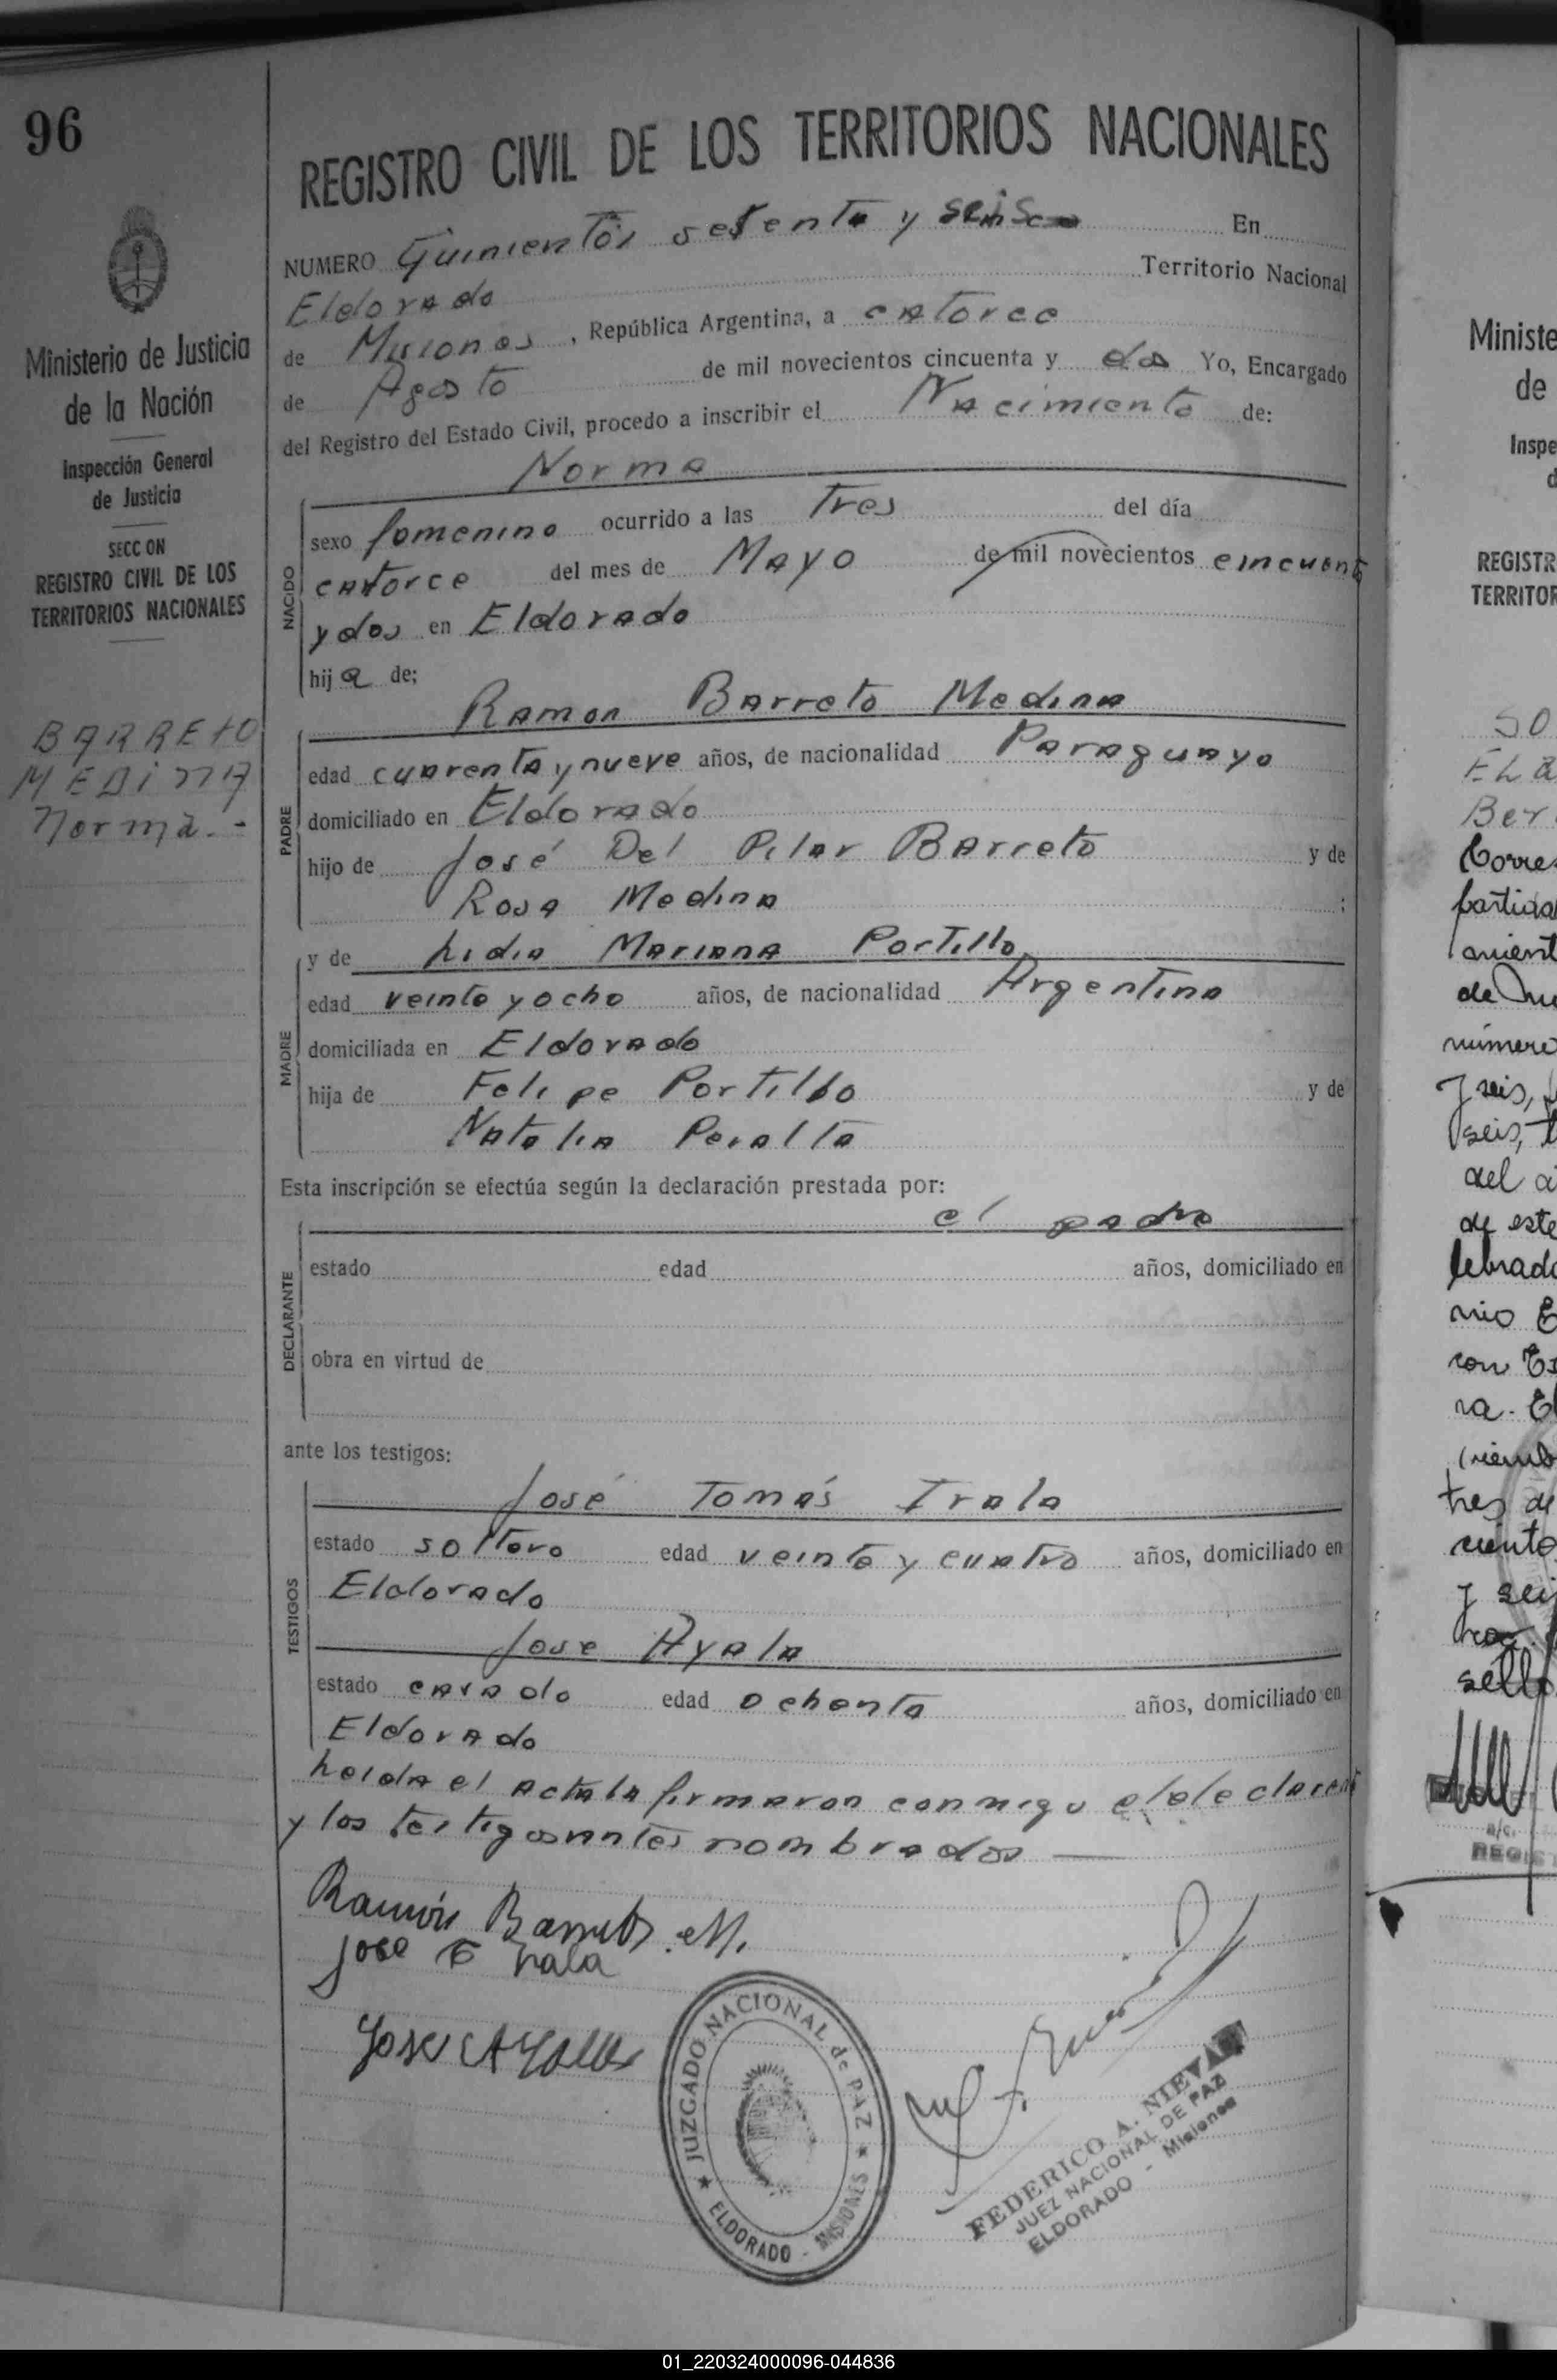 96
REGISTRO CIVIL DE LOS TERRITORIOS NACIONALES
NUMERO Quinientos setenta y seis En
Eldorado Territorio Nacional
de Misiones, República Argentina, a catorce
de Agosto de mil novecientos cincuenta y dos Yo, Encargado
del Registro del Estado Civil, procedo a inscribir el Nacimiento de:
Norma
NACIDO
sexo femenino ocurrido a las Tres del día
catorce del mes de Mayo de mil novecientos cincuent
y dos en Eldorado
hija de;
Ramon Barreto Medina
PADRE
edad cuarenta y nueve años, de nacionalidad Paraguayo
domiciliado en Eldorado
hijo de José Del Pilar Barreto y de
Rosa Medina ;
y de Lidia Mariana Portillo
MADRE
edad veinte y ocho años, de nacionalidad Argentina
domiciliada en Eldorado
hija de Felipe Portillo y de
Natalia Peralta
Esta inscripción se efectúa según la declaración prestada por:
el padre
DECLARANTE
estado edad años, domiciliado en
obra en virtud de
ante los testigos:
José Tomás Irala
TESTIGOS
estado soltero edad veinte y cuatro años, domiciliado en
Eldorado
Jose Ayala
estado casado edad ochenta años, domiciliado en
Eldorado
Leida el acta la firmaron conmigo el declarant
y los testigos antes nombrados
Ramón Barreto M.
Jose T Irala
Jose Ayala
JUZGADO NACIONAL de PAZ
ELDORADO - MISIONES
FEDERICO A. NIEVAS
JUEZ NACIONAL DE PAZ
ELDORADO - Misiones
Ministerio de Justicia
de la Nación
Inspección General
de Justicia
SECC ON
REGISTRO CIVIL DE LOS
TERRITORIOS NACIONALES
BARRETO
MEDINA
Norma.-
Ministe
de
Inspe
d
REGISTR
TERRITOR
SO
Ber
Corres
partida
amient
número
y seis,
seis,
del a
de este
lebrado
con
ra. El
tres de
ciento
y seis
sello
a/c.
REGIST
01_220324000096-044836